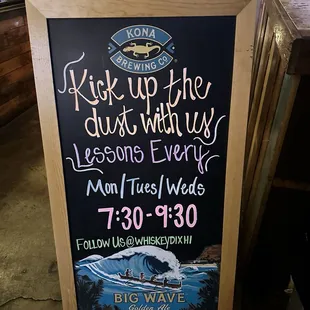 KONA
BREWING CO
Kick up the
dust with us
Lessons Every
Mon/Tues/Weds
7:30-9:30
FOLLOW US@WHISKEYDIXHI
BIG WAVE
Golden Ale